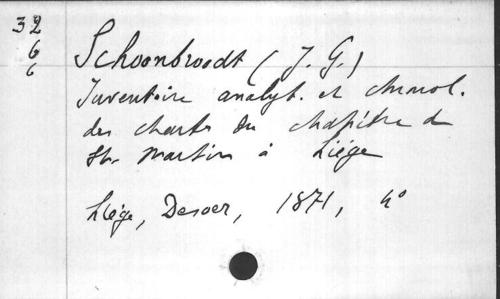 32
6
6
Schoonbroodt (J. G.)
Inventaire analyt. et chronol.
des chartes du chapitre de
St. Martin à Liége
Liége, Desoer, 1871, 4°